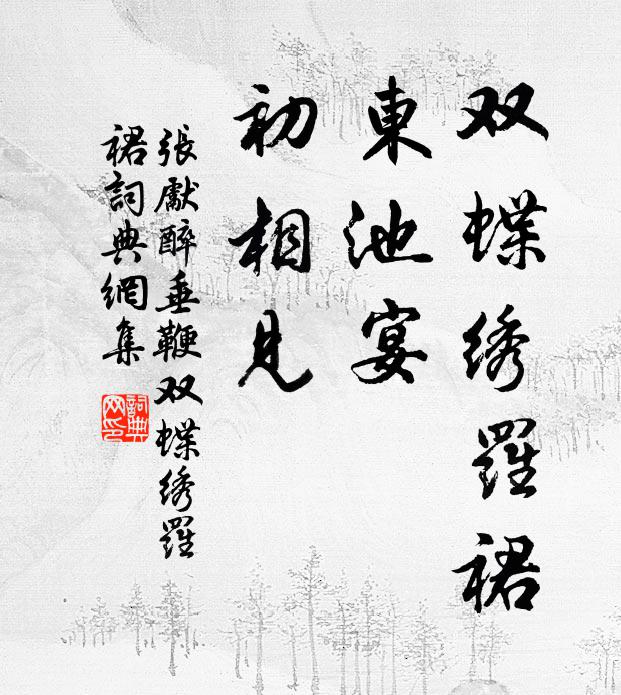 双蝶绣羅裙
東池宴
初相見
張獻醉垂鞭双蝶绣羅
裙詞典網集
詞典
网印